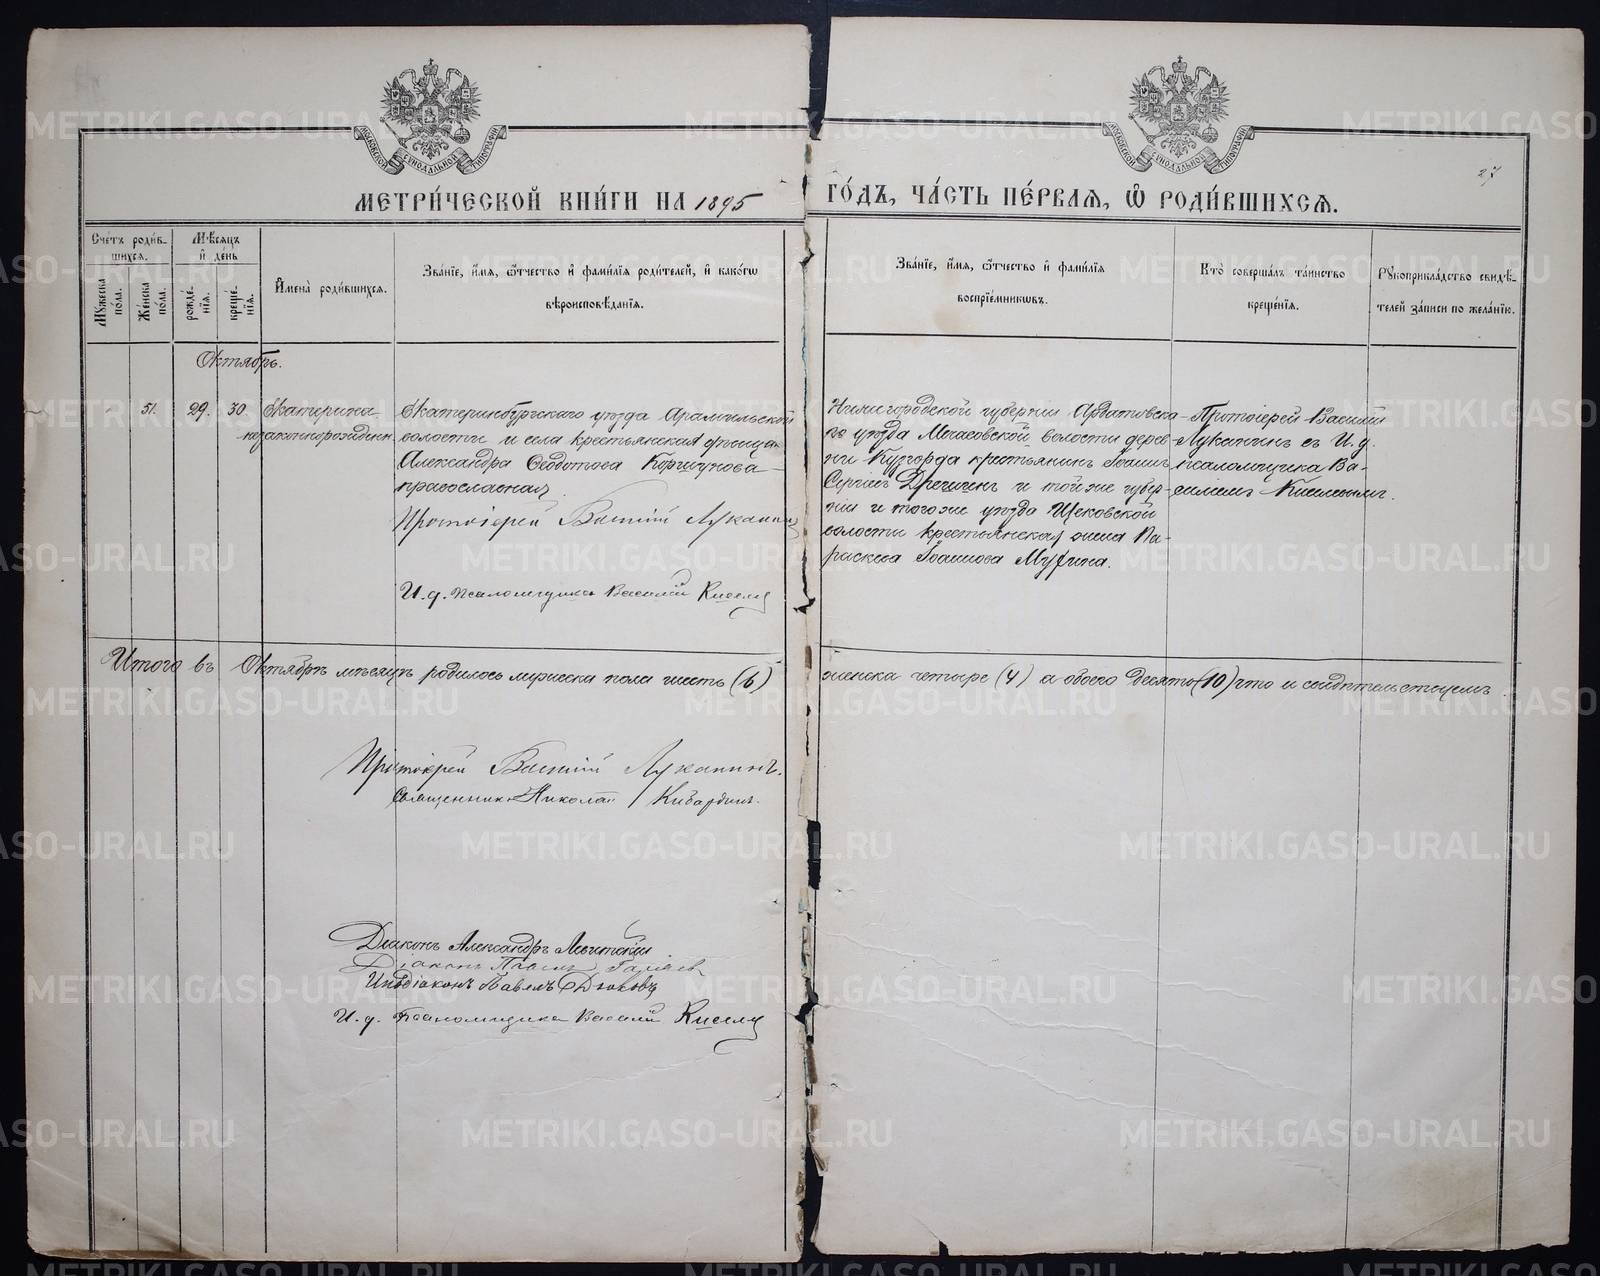 МОСКОВСКОЙ СѴНОДАЛЬНОЙ ТИПОГРАФІИ
МОСКОВСКОЙ СѴНОДАЛЬНОЙ ТИПОГРАФІИ
27
МЕТРИ́ЧЕСКОЙ КНИ́ГИ НА 1895
ГО́ДЪ, ЧА́СТЬ ПЕ́РВАЯ, Ѡ РОДИ́ВШИХСЯ.
Сче́тъ роди́в-
шихся.
Мꙋжеска по́ла.
Же́нска по́ла.
Мѣ́сяцъ
и де́нь
рожде́-
нїя.
креще́-
нїя.
Имена̀ роди́вшихся.
Зва́нїе, и́мя, ѻ́тчество и фами́лїя роди́телей, и како́гѡ
вѣроисповѣ́данїя.
Зва́нїе, и́мя, ѻ́тчество и фами́лїя
воспрїе́мникѡвъ.
Кто̀ соверша́лъ та́инство
креще́нїя.
Рꙋкоприкла́дство свидѣ́-
телей за́писи по жела́нїю.
Октябрь.
51. 29. 30. Екатерина
незаконнорожденн.
Екатеринбургскаго уѣзда Арамильской
волости и села крестьянская дѣвица
Александра Ѳеодотова Коршунова
православная.
Протоіерей Василій Луканинъ
И. д. псаломщика Василій
Нижегородской губерніи Ардатовска-
го уѣзда Мечасовской волости дерев-
ни Кузгорда крестьянинъ Іоаннъ
Сергіевъ и той же губер-
ніи и того же уѣзда
волости крестьянская жена Па-
раскева Іоаннова
Протоіерей Василій
Луканинъ съ И. д.
псаломщика Ва-
силіемъ
Итого въ Октябрѣ мѣсяцѣ родилось мужеска пола шесть (6)
женска четыре (4) а обоего десять (10) что и свидѣтельствуемъ
Протоіерей Василій Луканинъ.
Священникъ Николай Кибардинъ.
Діаконъ Александръ Левитскій
Діаконъ
Иподіаконъ Павелъ
И. д. Псаломщика Василій
METRIKI.GASO-URAL.RU